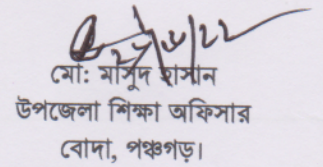 মো: মাসুদ হাসান
উপজেলা শিক্ষা অফিসার
বোদা, পঞ্চগড়।